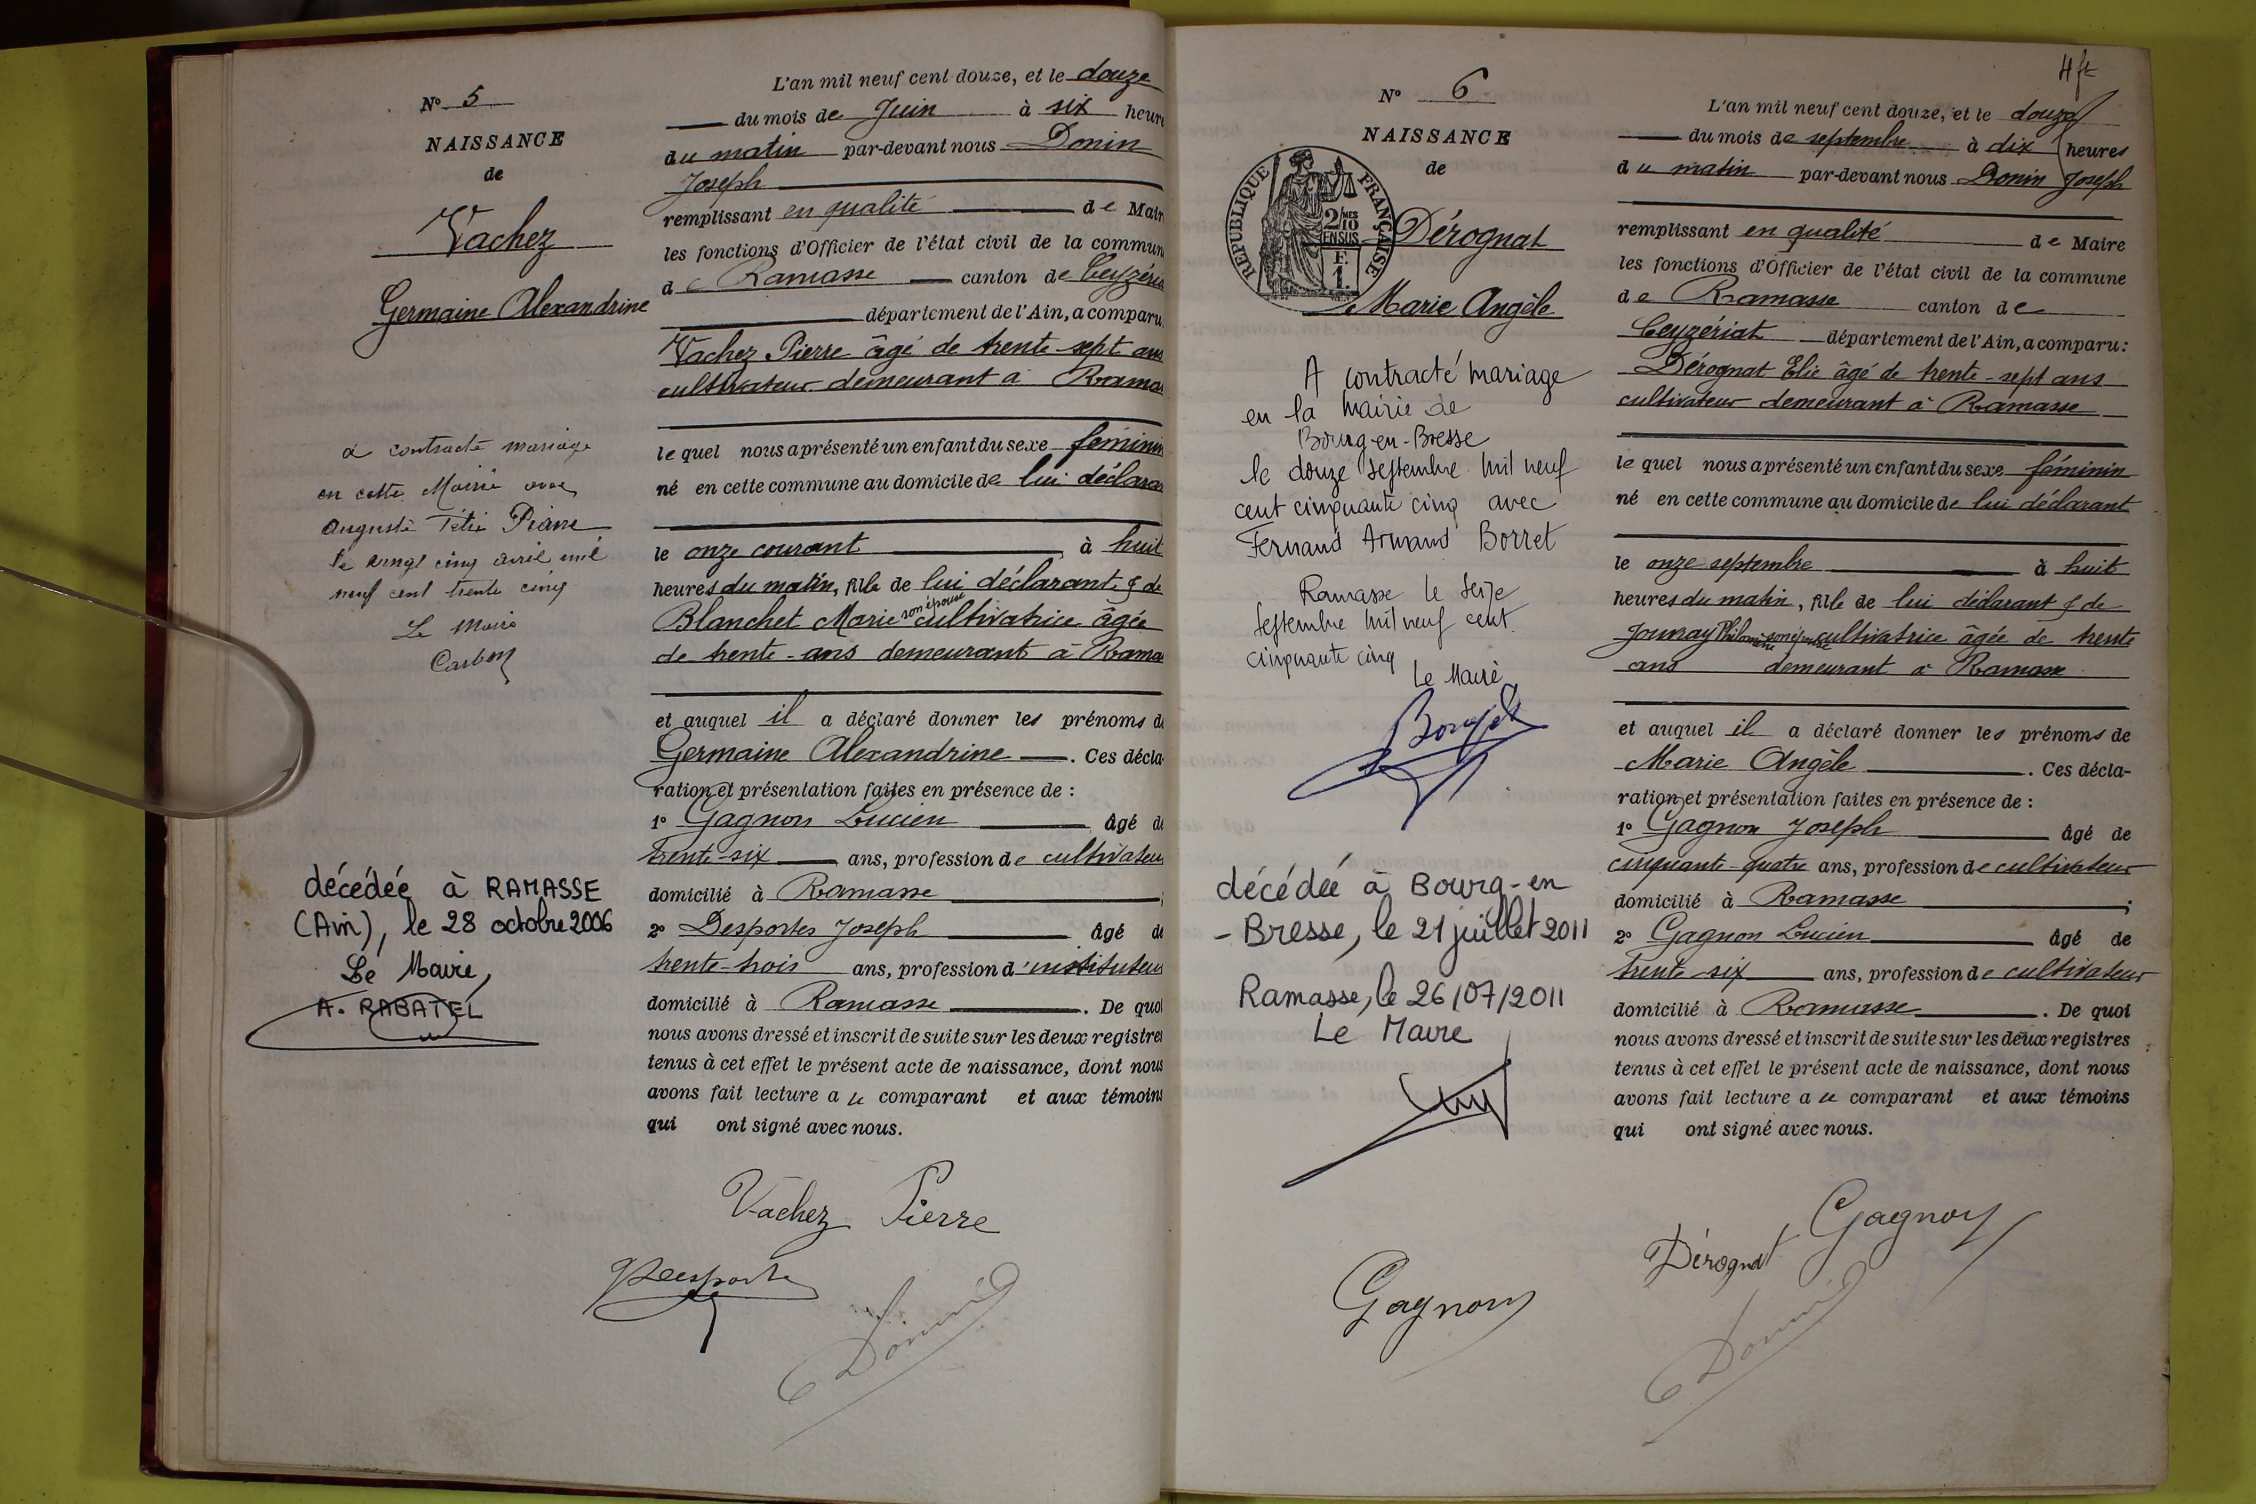 N° 5
NAISSANCE
de
Vachez
Germaine Alexandrine
a contracté mariage
en cette Mairie avec
Auguste Piane
le vingt cinq avril mil
neuf cent trente cinq
Le Maire
décédée à RAMASSE
(Ain), le 28 octobre 2006
Le Maire,
A. RABATEL
L'an mil neuf cent douze, et le douze
du mois de Juin à six heure
du matin par-devant nous Donin
Joseph
remplissant en qualité de Mair
les fonctions d'Officier de l'état civil de la commun
de Ramasse canton de Ceyzéria
département de l'Ain, a comparu
Vachez Pierre âgé de trente-sept ans
cultivateur demeurant à Ramas
lequel nous a présenté un enfant du sexe féminin
né en cette commune au domicile de lui déclara
le onze courant à huit
heures du matin, fille de lui déclarant & de
Blanchet Marie son épouse cultivatrice âgée
de trente-ans demeurant à Ramas
et auquel il a déclaré donner les prénoms d
Germaine Alexandrine . Ces décla-
ration et présentation faites en présence de :
1° Gagnon Lucien âgé d
trente-six ans, profession de cultivateur
domicilié à Ramasse ;
2° Desportes Joseph âgé d
trente-trois ans, profession d'instituteur
domicilié à Ramasse . De quoi
nous avons dressé et inscrit de suite sur les deux registres
tenus à cet effet le présent acte de naissance, dont nous
avons fait lecture au comparant et aux témoins
qui ont signé avec nous.
Vachez Pierre
Desportes
Donin
N° 6
NAISSANCE
de
RÉPUBLIQUE FRANÇAISE
2/10 MES
EN SUS
F.
1.
Dérognat
Marie Angèle
A contracté mariage
en la mairie de
Bourg-en-Bresse
le douze septembre mil neuf
cent cinquante cinq avec
Fernand Armand Borret
Ramasse le seize
septembre mil neuf cent
cinquante cinq
Le Maire
décédée à Bourg-en
-Bresse, le 21 juillet 2011
Ramasse, le 26/07/2011
Le Maire
Gagnon
L'an mil neuf cent douze, et le douze
du mois de septembre à dix heures
du matin par-devant nous Donin Joseph
remplissant en qualité de Maire
les fonctions d'Officier de l'état civil de la commune
de Ramasse canton de
Ceyzériat département de l'Ain, a comparu :
Dérognat Elie âgé de trente-sept ans
cultivateur demeurant à Ramasse
lequel nous a présenté un enfant du sexe féminin
né en cette commune au domicile de lui déclarant
le onze septembre à huit
heures du matin, fille de lui déclarant & de
son épouse cultivatrice âgée de trente
ans demeurant à Ramasse
et auquel il a déclaré donner les prénoms de
Marie Angèle . Ces décla-
ration et présentation faites en présence de :
1° Gagnon Joseph âgé de
cinquante-quatre ans, profession de cultivateur
domicilié à Ramasse ;
2° Gagnon Lucien âgé de
trente six ans, profession de cultivateur
domicilié à Ramasse . De quoi
nous avons dressé et inscrit de suite sur les deux registres
tenus à cet effet le présent acte de naissance, dont nous
avons fait lecture au comparant et aux témoins
qui ont signé avec nous.
Gagnon
Dérognat
Donin